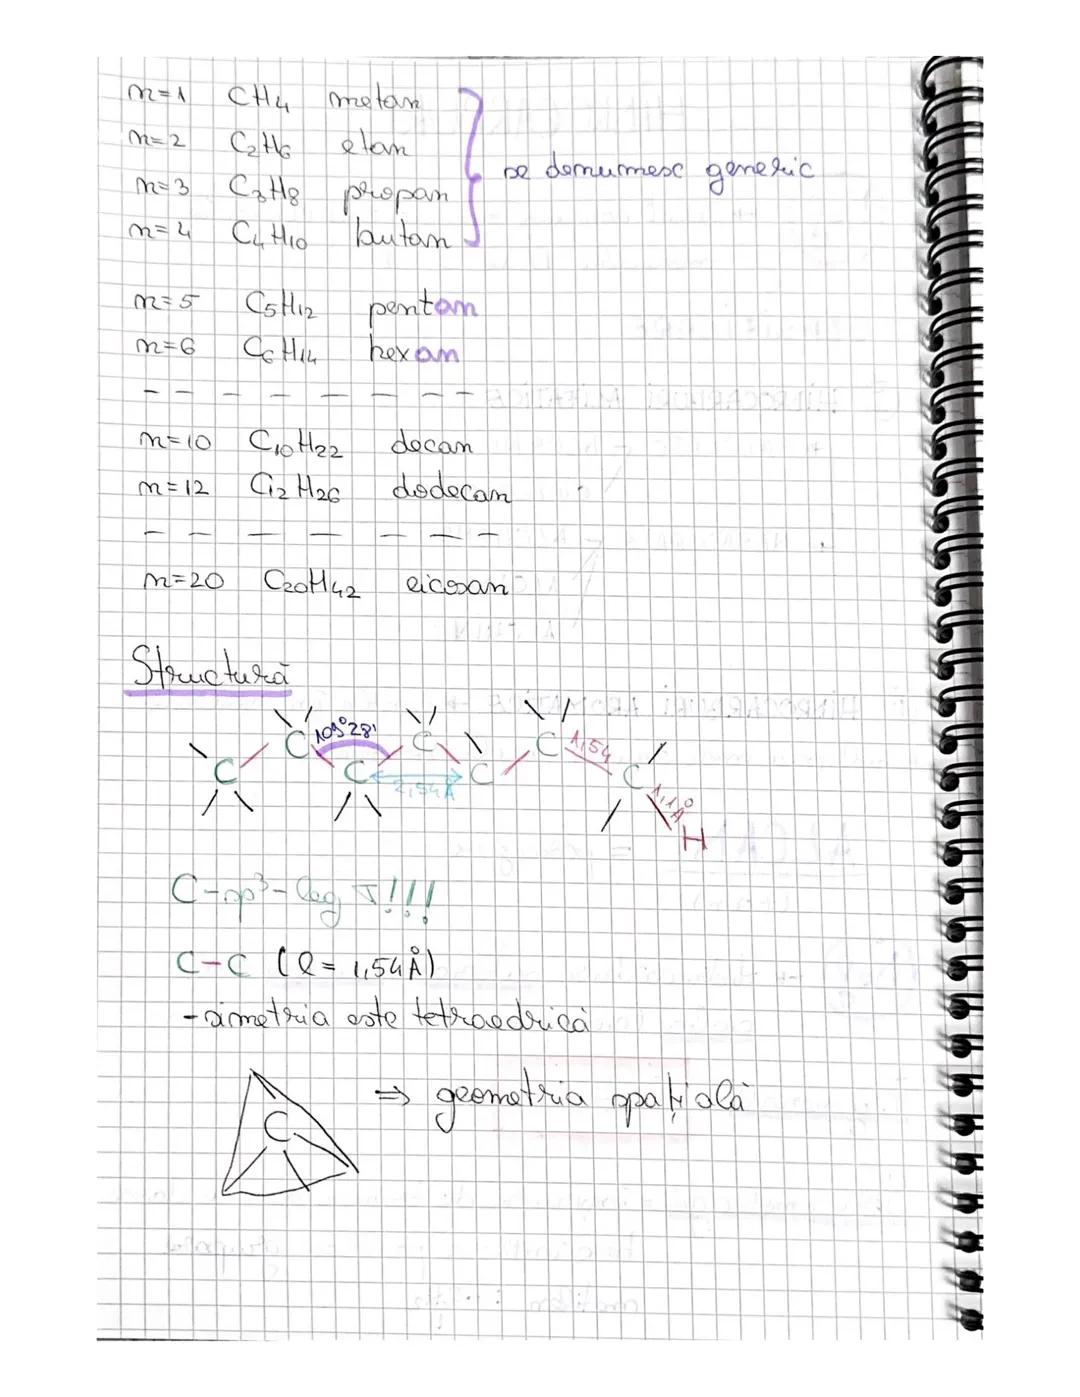 n=1 CH4 metan
n=2 C2H6 etan
n=3 C3H8 propan
n=4 C4H10 butan
se denumesc generic
n=5 C5H12 pentan
n=6 C6H14 hexan
n=10 C10H22 decan
n=12 C12H26 dodecan
n=20 C20H42 eicosan
Structură
C C C C C C C
109°28'
2,54Å
1,54
1,1Å
H
C-sp³- leg σ!!!
C-C (l= 1,54Å)
-simetria este tetraedrică
C
⇒ geometria spațială